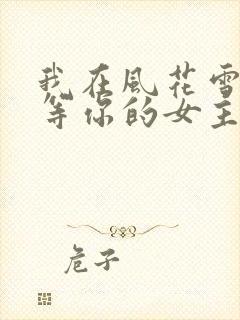 我在風花雪
等你的女主
危子